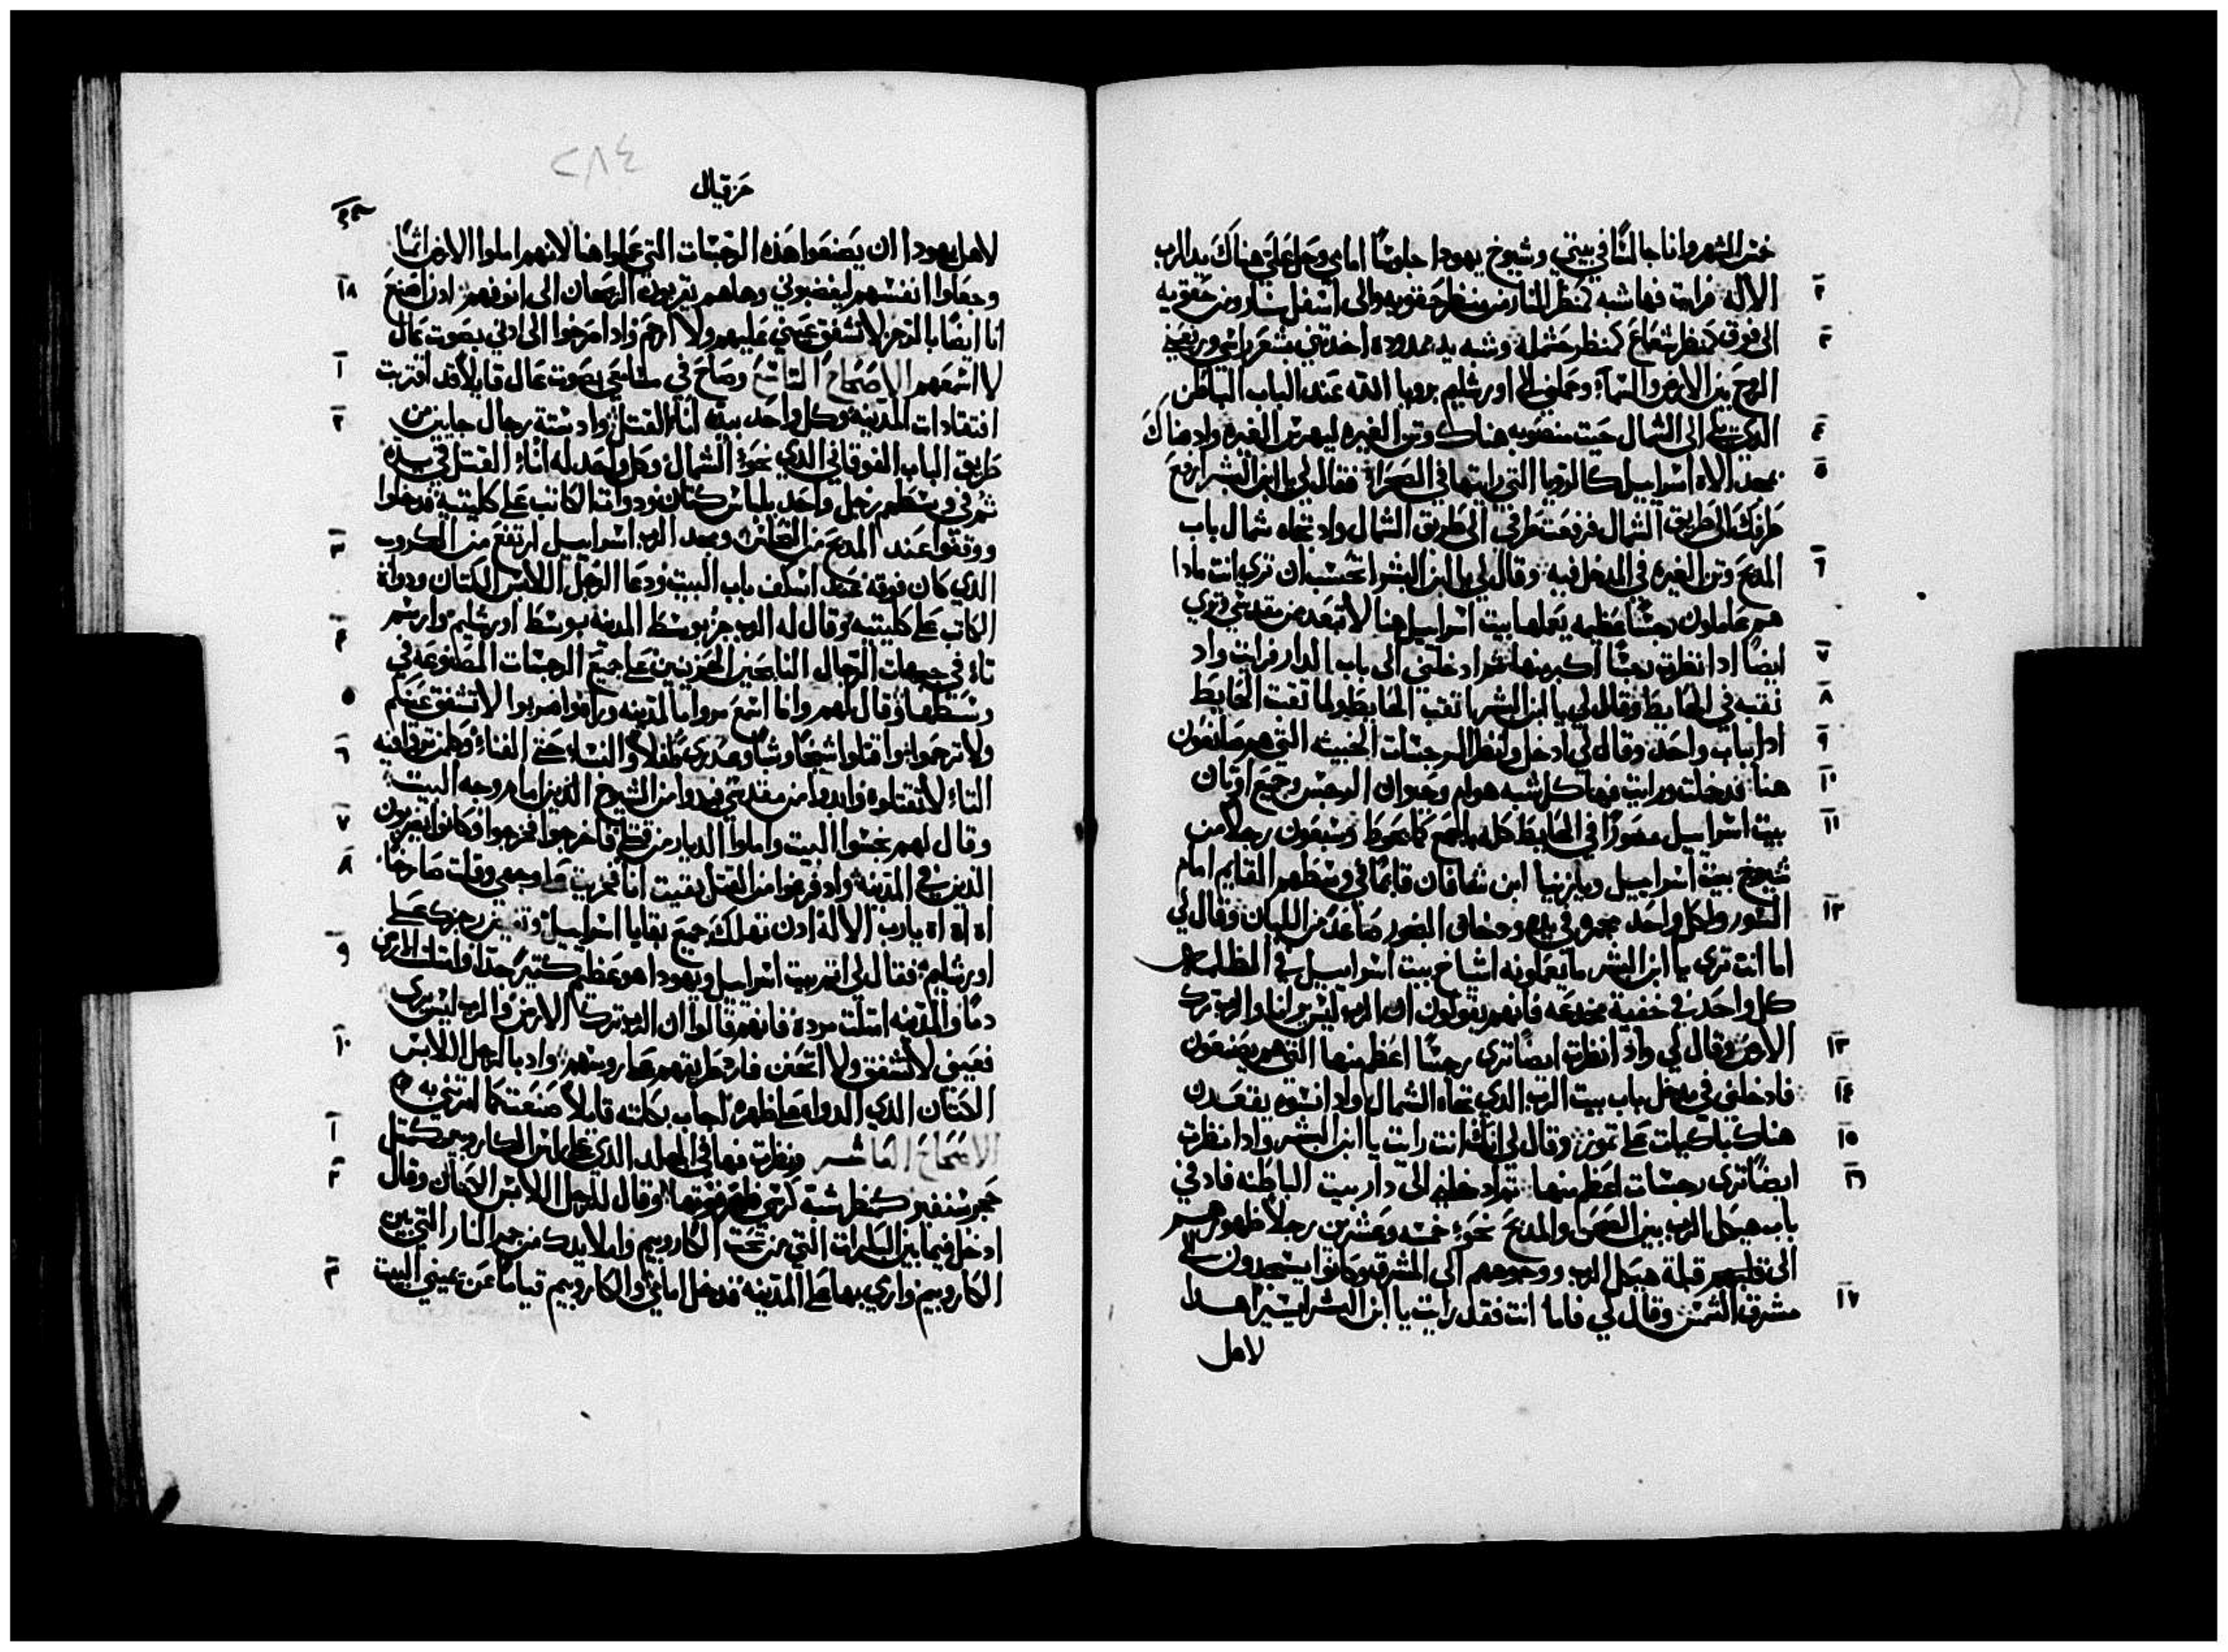 خمس الشهر وانا جالسًا في بيتي وشيوخ يهودا جلوسًا امامي وحل علي هناك يد الرب
٢ الاله فرايت فها شبه كمنظر النار من منظر حقويه والى اسفل نار ومن حقويه
٣ الى فوق كمنظر شعاع كمنظر حشمله وشبه يد ممدوده اخذتني بشعر راسي ورفعني
الروح بين الارض والسماء وحملني الى اورشليم برويا الله عند الباب الباطن
٤ الى الشمال حيث منصوبه هناك وثن الغيره ليهيج الغيره واد هناك
٥ مجد الاه اسراييل كالرويا التي رايتها في الصحراء فقال لي يا ابن البشر ارفع
طرفك الى طريق الشمال فرفعت طرفي الى طريق الشمال واد تجاه شمال باب
٦ المدبح وثن الغيره في المدخل فيه وقال لي يا ابن البشر اتحسب ان تري انت مادا
هم عاملون رجسًا عظيمه يعملها بيت اسراييل هنا لاتبعد من مقدسي وتري
٧ ايضًا ادا نظرت رجسًا اكبر منها ثم ادخلني الى باب الدار فرايت واد
٨ نقبه في الحايط وقال لي يا ابن البشر انقب الحايط ولما نقبت الحايط
٩ ادا باب واحد وقال لي ادخل وانظر الرجسات الخبيثه التي هم صانعون
١٠ هنا فدخلت ورايت فها كل شبه هوام وحيوان الرجس وجميع اوثان
١١ بيت اسراييل مصورًا في الحايط كله بالجمع كما يحوط وسبعون رجلًا من
شيوخ بيت اسراييل ويازنيا ابن شافان قايمًا في وسطهم القايم امام
١٢ الصور ولكل واحد مجمره في يده ودخان البخور صاعد من اللبان وقال لي
اما انت تري يا ابن البشر ما يعملونه اشياخ بيت اسراييل في الظلمه
كل واحد في خفية مخدعه فانهم يقولون ان الرب ليس يرانا والرب ترك
١٣ الارض وقال لي واد انظرت ايضًا تري رجسًا اعظم منها التي هم يصنعون
١٤ فادخلني في مدخل باب بيت الرب الذي تجاه الشمال واد انسوه يقعدن
١٥ هناك باكيات على تموز وقال لي انك انت رايت يا ابن البشر وادا نظرت
١٦ ايضًا تري رجسات اعظم منها ثم ادخلني الى دار بيت الباطنه فاد في
باب هيكل الرب بين الصحن والمدبح نحو خمسه وعشرين رجلًا ظهورهم
الى قبلة هيكل الرب ووجوههم الى المشرق وكانوا يسجدون الى
١٧ مشرق الشمس وقال لي فاما انت فقد رايت يا ابن البشر ايسير هدا
لاهل
٢٨٤
حزقيال
لاهل يهودا ان يصنعوا هذه الرجسات التي عملوا هنا لانهم املوا الارض اثمًا
١٨ وجعلوا انفسهم ليغضبوني وهاهم يقربون الريحان الى انوفهم ادن اصنع
انا ايضًا بالرجز لا تشفق عيني عليهم ولا ارحم وادا صرخوا الى ادني بصوت عال
١ لا اسمعهم الاصحاح التاسع وصاح في مسامعي بصوت عال قايلًا قد اقتربت
٢ افتقادات المدينه وكل واحد بيده اناء القتل واد ستة رجال جايين من
طريق الباب الفوقاني الدي نحو الشمال وكل واحد له اناء القتل في يده
ثم في وسطهم رجل واحد بلباس كتان ودواة الكاتب على كليتيه فدخلوا
٣ ووقفوا عند المدبح من النحاس ومجد الرب اسراييل ارتفع من الكروب
الدي كان فوقه نحو اسكف باب البيت ودعا الرجل اللابس الكتان ودواة
٤ الكاتب على كليتيه وقال له الرب جز بوسط المدينه بوسط اورشليم وارسم
تاء في جبهات الرجال النايحين الحزينين على جميع الرجسات المصنوعه في
٥ وسطها وقال لهم وانا اسمع مروا بالمدينه وراه واضربوا لا تشفق عينكم
٦ ولا ترحموا اقتلوا شيخًا وشابًا وعدري وطفلًا والنساء حتى الفناء وكلمن ترون فيه
التاء لا تقتلوه وابدوا من مقدسي فبدوا من الشيوخ الذين امام وجه البيت
٧ وقال لهم نجسوا البيت واملوا الديار من قتلى فاخرجوا فخرجوا وكانوا يضربون
٨ الذين في المدينه واد فرغوا من القتل بقيت انا فخريت على وجهي وقلت صارخًا
اه اه اه يارب الاله ادن تهلك جميع بقايا اسراييل وتفيض رجزك على
٩ اورشليم فقال لي اثم بيت اسراييل ويهودا هو عظيم كتير جدًا وامتلت الارض
دمًا والمدينه امتلت مرده فانهم قالوا ان الرب ترك الارض والرب ليس يري
١٠ فعيني لا تشفق ولا اتحنن فارد طريقهم على روسهم واد بالرجل اللابس
الكتان الذي الدواه على ظهره اجاب بكلمه قايلًا صنعت كما امرتني به
١ الاصحاح العاشر ونظرت فها في الجلد الذي على راس الكاروبيم كمتل
٢ حجر سنفير كمنظر شبه كرسي ظهر فوقها وقال للرجل اللابس الكتان وقال
ادخل فيما بين البكرات التي من تحت الكاروبيم واملا يدك من جمر النار التي بين
٣ الكاروبيم واري بها على المدينه فدخل امامي والكاروبيم قيامًا عن يميني البيت